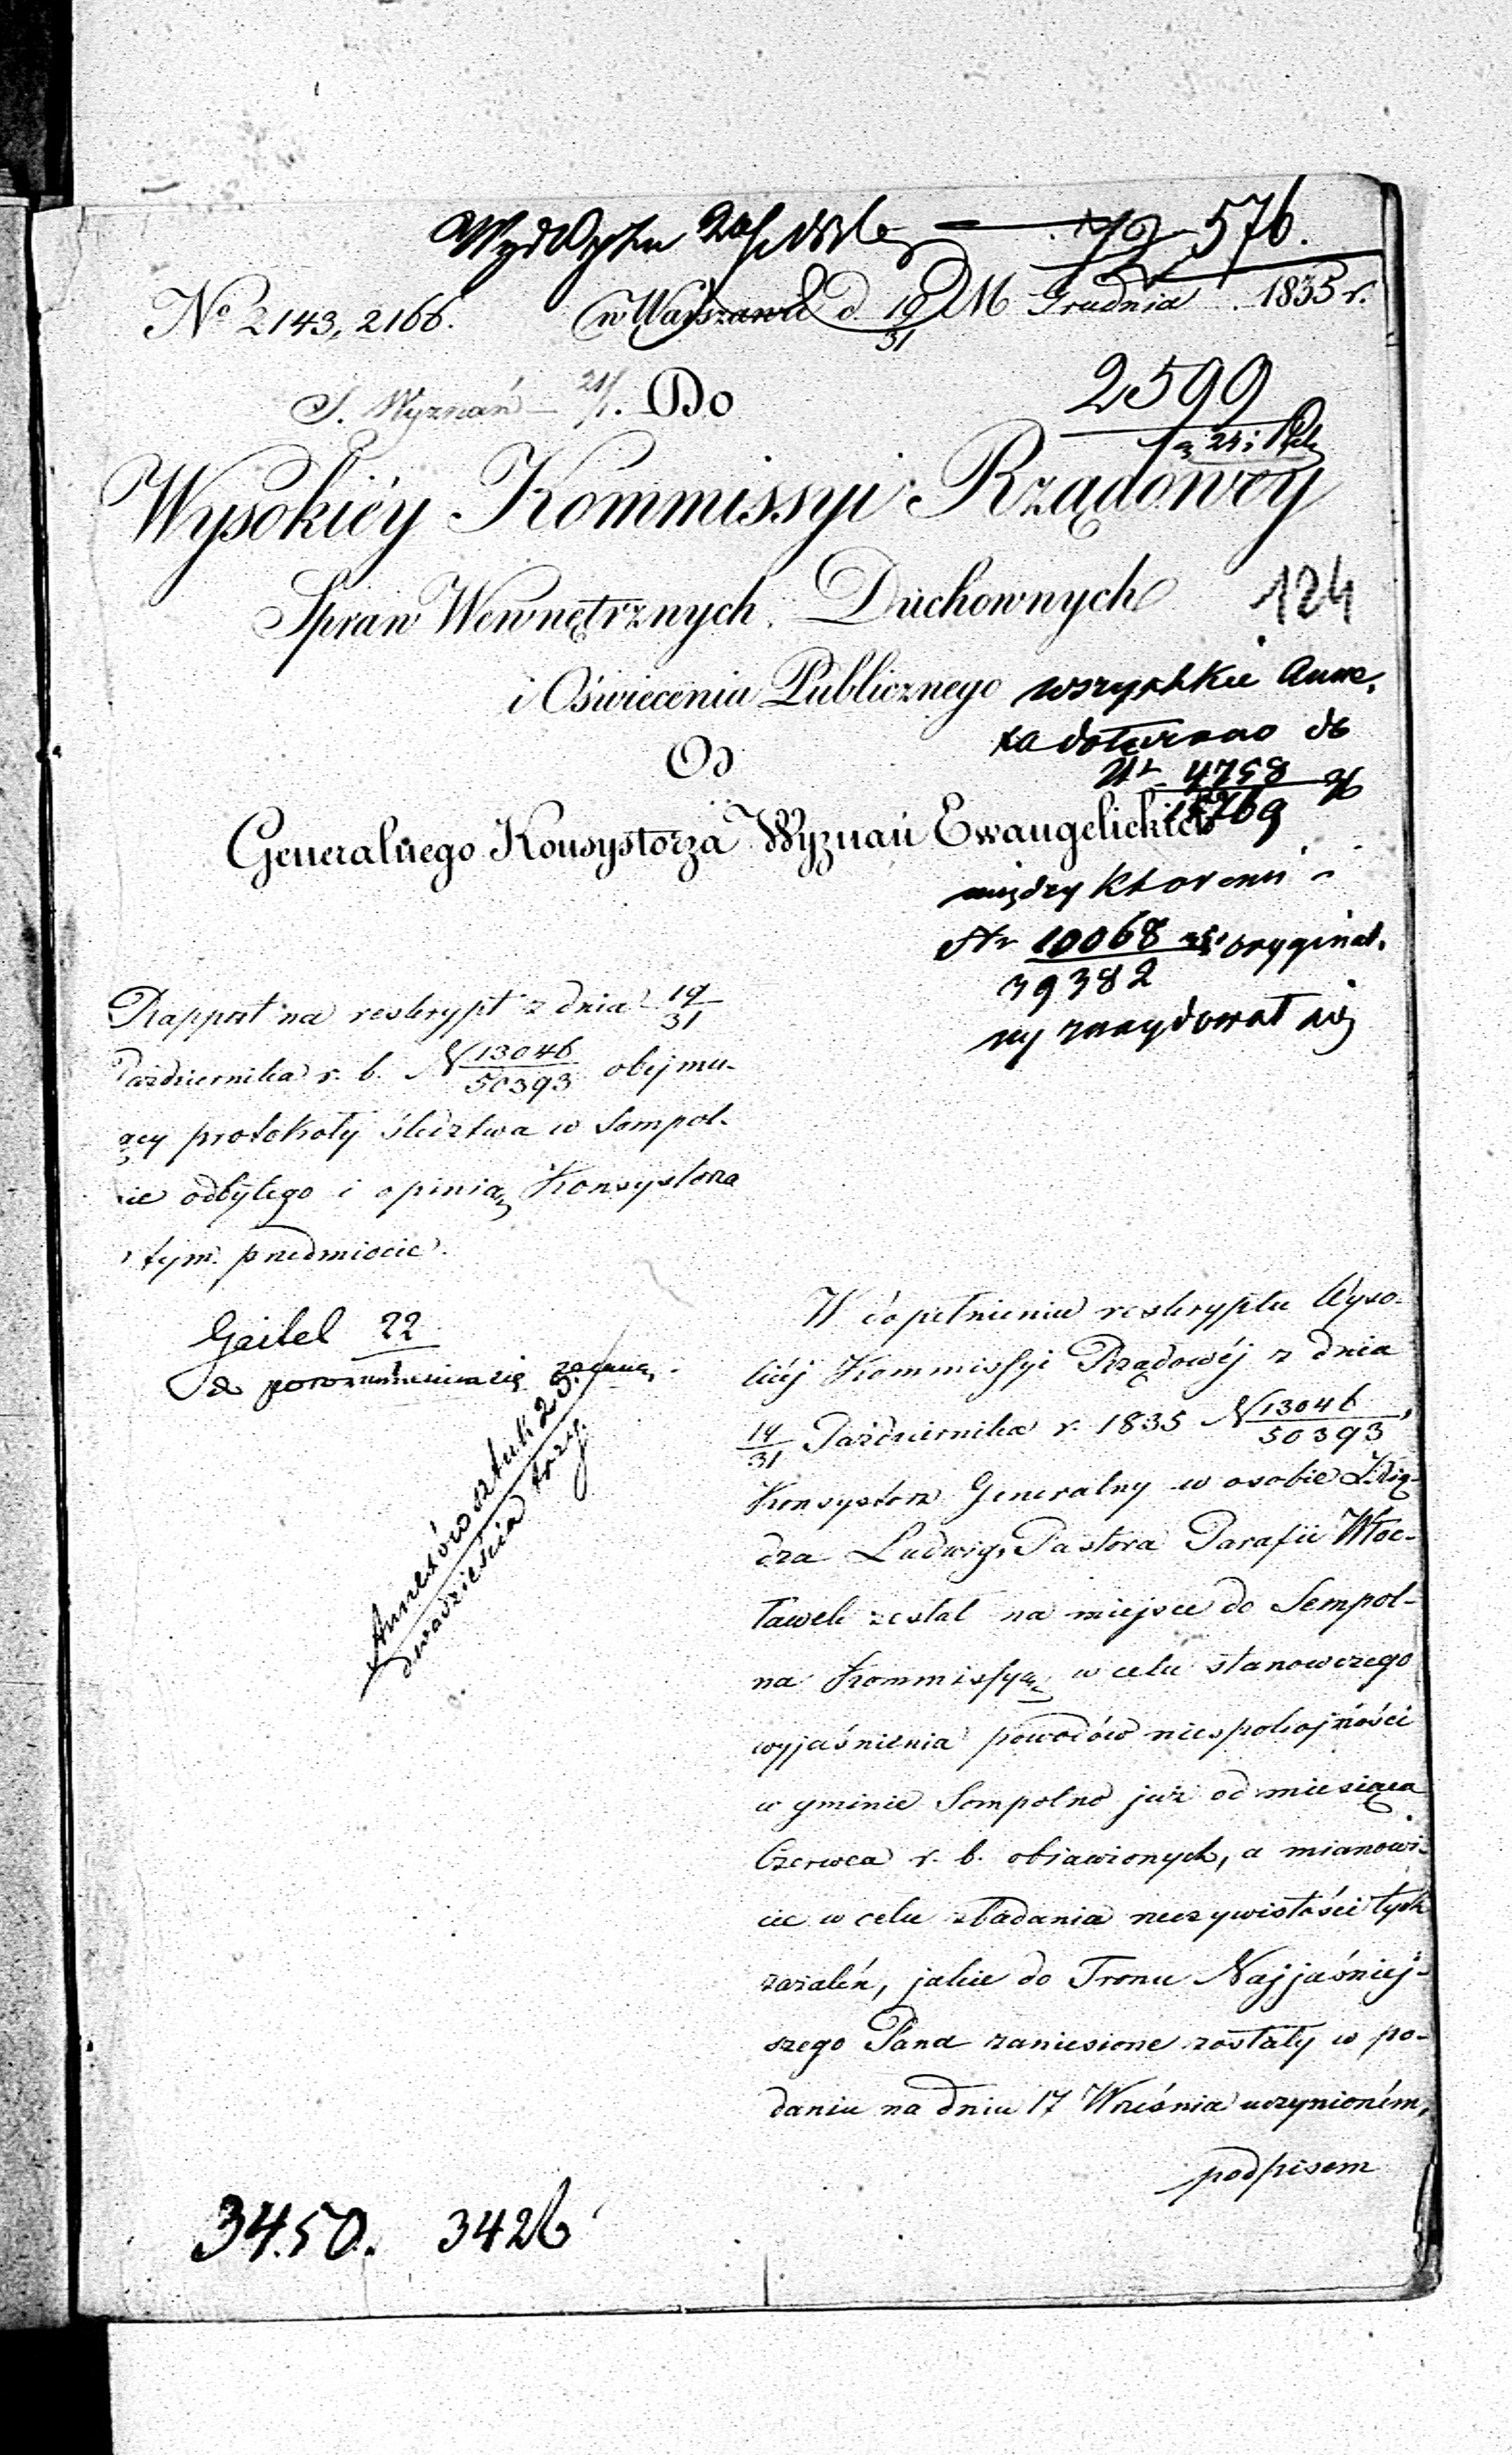 576.
No 2143, 2166. w Warszawie d. 19/31 Grudnia 1835 r.
S. Wyznań 21/1. Do
2599
Wysokiéy Kommissyi Rządowéy
Spraw Wewnętrznych Duchownych
124
i Oświecenia Publicznego
wszystkie anne,
xa dołączono do
Nr 4758/18769
Od
Generalnego Konsystorza Wyznań Ewangelickich
między któremi
Nr 10068/39382 oryginal,
ny znaydował się
Rapport na reskrypt z dnia 19/31
Października r. b. N 13046/50393 obejmu-
ący protokoły śledztwa w Sompol-
nie odbytego i opinią Konsystorza
w tym przedmiocie.
Geitel 22
do porozumienia się
Annexów sztuk 23.
dwadzieścia trzy.
W dopełnieniu reskryptu Wyso-
kiéj Kommissyi Rządowéj z dnia
19/31 Października r. 1835 N 13046/50393,
Konsystorz Generalny w osobie Xię-
dza Ludwig, Pastora Parafii Włoc-
ławek zesłał na miejsce do Sempol-
na Kommissyą, w celu stanowczego
wyjaśnienia powodów niespokojności
w gminie Sompolno już od miesiąca
Czerwca r. b. obiawionych, a mianowi-
cie w celu zbadania rzeczywistości tych
zażaleń, jakie do Tronu Najjaśniej-
szego Pana zaniesione zostały w po-
daniu na dniu 17 Września uczynioném,
podpisem
34.50. 3426